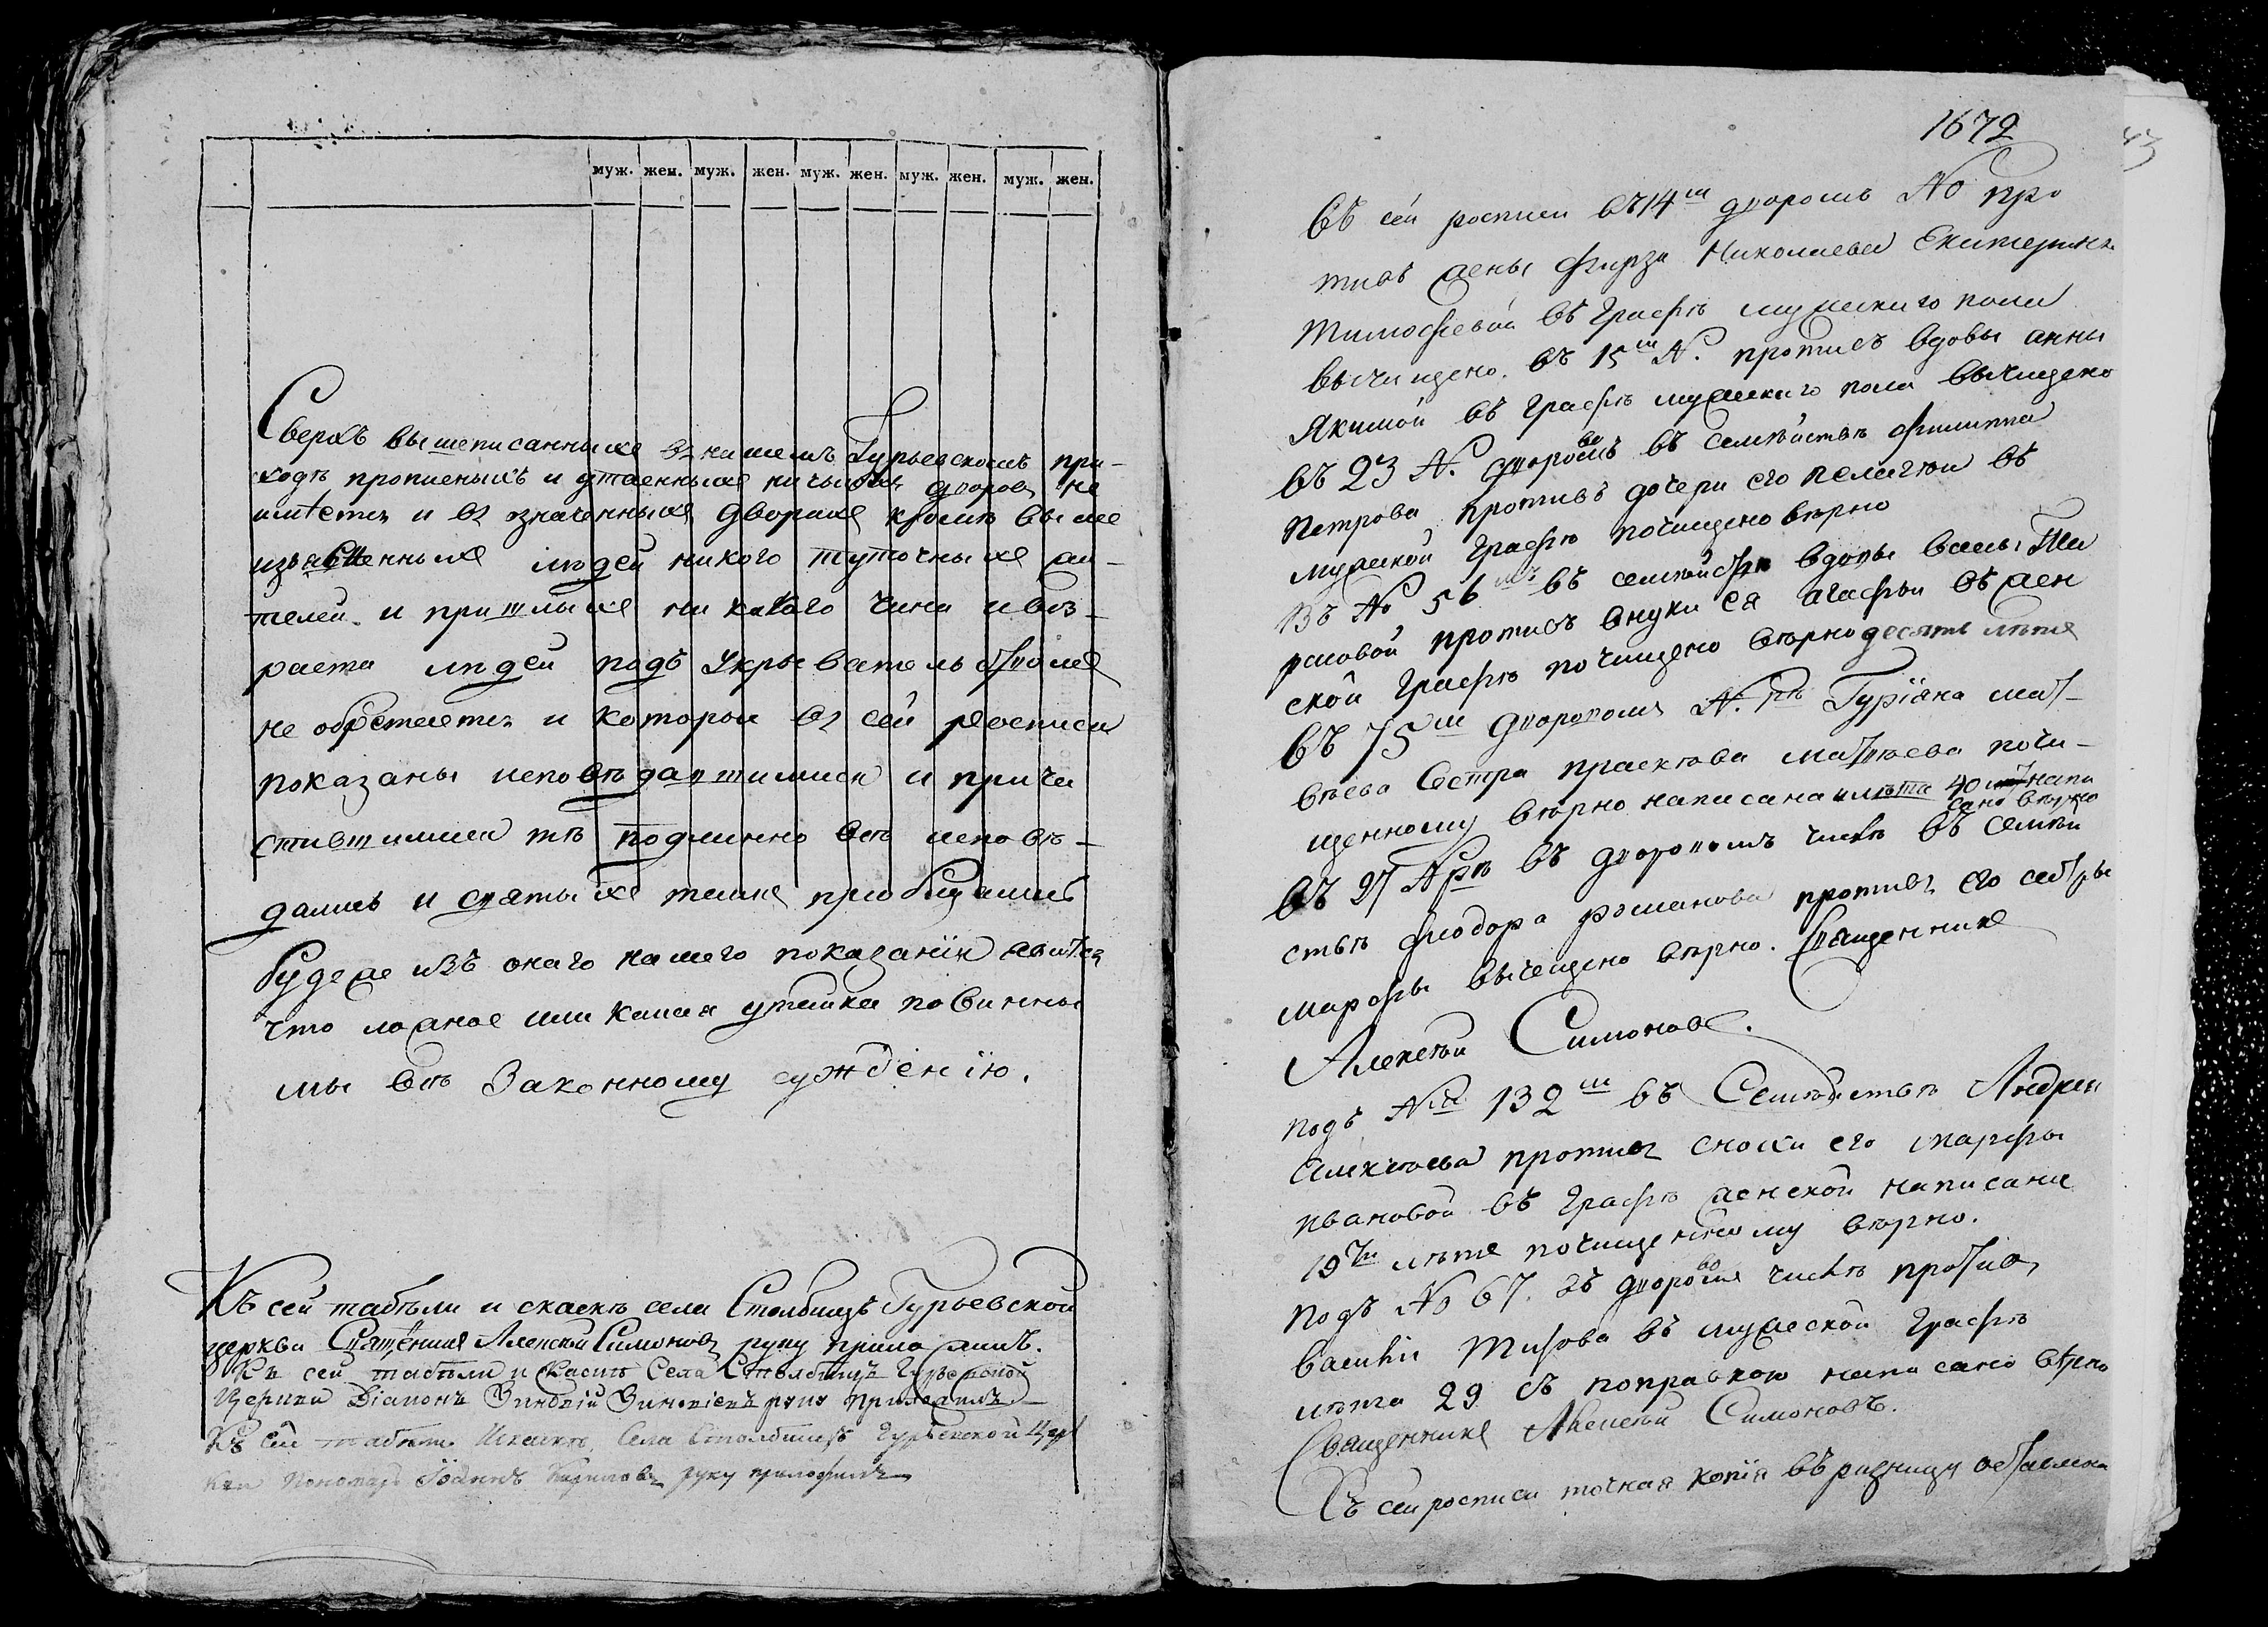 муж. жен. муж. жен. муж. жен. муж. жен. муж. жен.
Сверхъ вышеписанныхъ въ нашемъ Гурьевскомъ при-
ходѣ прописныхъ и утаенныхъ ничьихъ дворовъ не
имѣетъ и въ означенныхъ дворахъ кромѣ выше
изъявленныхъ людей никого туточныхъ жи-
телей и пришлыхъ ни какого чина и воз-
раста людей подъ укрывательствомъ
не обрѣтается и которыя въ сей росписи
показаны исповѣдавшимися и прича
стившимися тѣ подлинно всѣ исповѣ-
дались и святыхъ таинъ приобщались
будеже изъ онаго нашего показанія явится
что ложное или какая утайка повинны
мы всѣ законному сужденію.
Къ сей табѣли и скаскѣ села Столбищъ Гурьевской
церкви Священникъ Алексѣй Симоновъ руку приложилъ.
Къ сей табѣли и скаскѣ Села Столбищъ Гурьевской
Церкви Діаконъ Зиновій Зиновіевъ руку приложилъ
Къ сей табѣли и скаскѣ Села Столбищъ Гурьевской Цер
кви Пономарь Іоаннъ Кириловъ руку приложилъ
1672
43
Въ сей росписи въ 14м дворомъ No про
тивъ жены Фирза Николаева Екатерины
Тимофѣевой въ Графѣ мужескаго пола
вычищено. въ 15м N. противъ вдовы анны
Якимой въ Графѣ мужескаго пола вычищено
въ 23 N. дворовомъ въ семѣйствѣ филиппа
Петрова противъ дочери его пелагѣи въ
мужской Графѣ почищено вѣрно
въ No 56мъ въ семѣйствѣ вдовы васы Та
расовой противъ внуки ея агафьи въ жен
ской Графѣ почищено вѣрно десять лѣтъ
въ 75м дворовомъ N.рѣ Гуріяна мат-
вѣева Сестра праскова матвѣева почи-
щенному вѣрно написана лѣта 40 напи
сано вѣрно
въ 97 Nрѣ въ дворовомъ числѣ въ семѣй
ствѣ фиодора романова противъ его сестры
марфы вычещено вѣрно. Священникъ
Алексѣй Симоновъ.
подъ N. 132м въ Семѣйствѣ Андрея
алексѣева противъ снохи его марфы
ивановой въ Графѣ женской написане
19ти лѣтъ почищенному вѣрно.
подъ No 67. въ дворовомъ числѣ противъ
василья Титова въ мужеской Графѣ
лѣта 29 съ поправкою написано вѣрно
Священникъ Алексѣй Симоновъ.
Съ сей росписи точная копія въ ризницѣ оставлена